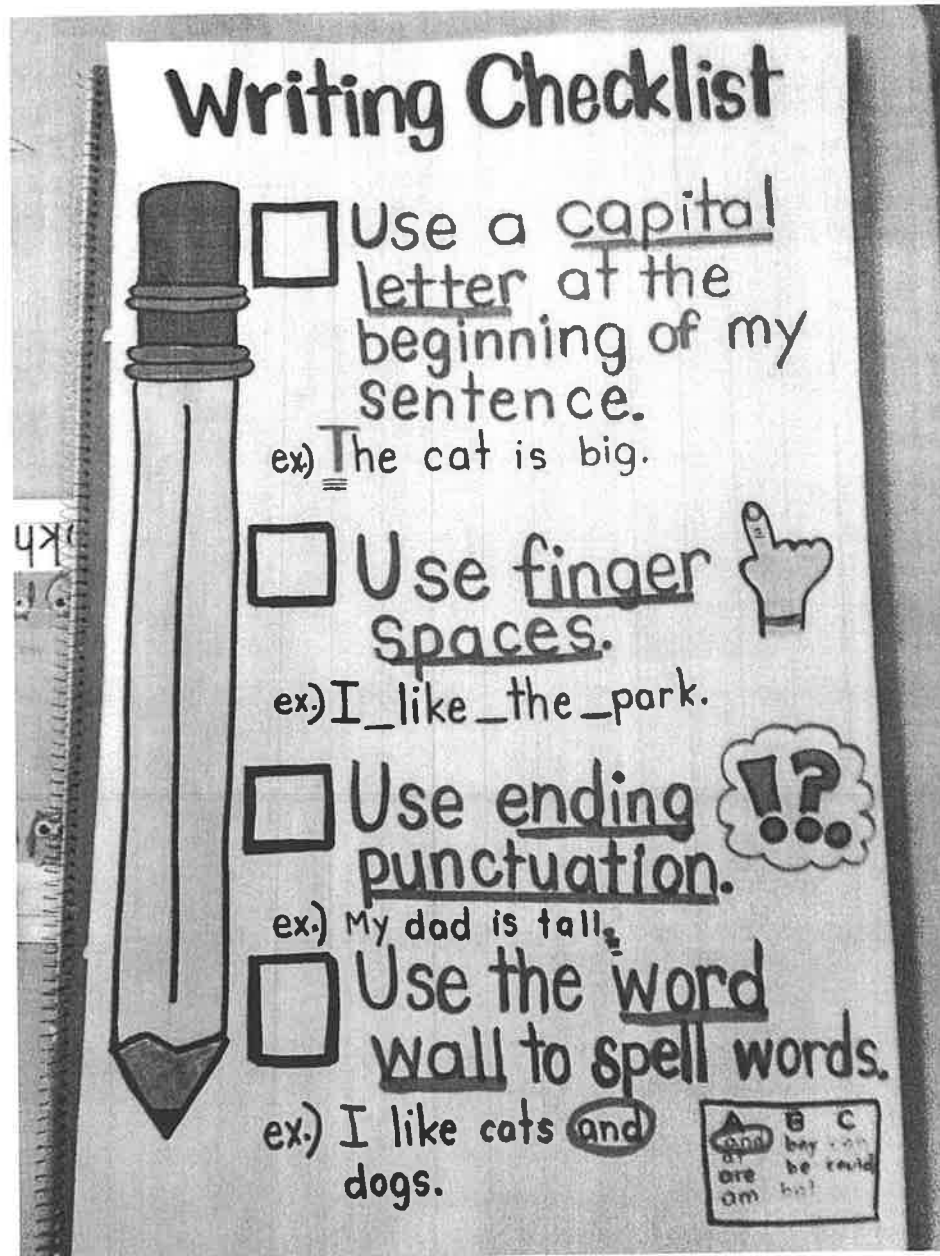 Writing Checklist
Use a capital
letter at the
beginning of my
sentence.
ex.) The cat is big.
Use finger
spaces.
ex.) I_like_the_park.
Use ending
punctuation.
!?.
ex.) My dad is tall.
Use the word
wall to spell words.
ex.) I like cats and
dogs.
A B C
and boy
are be could
am but